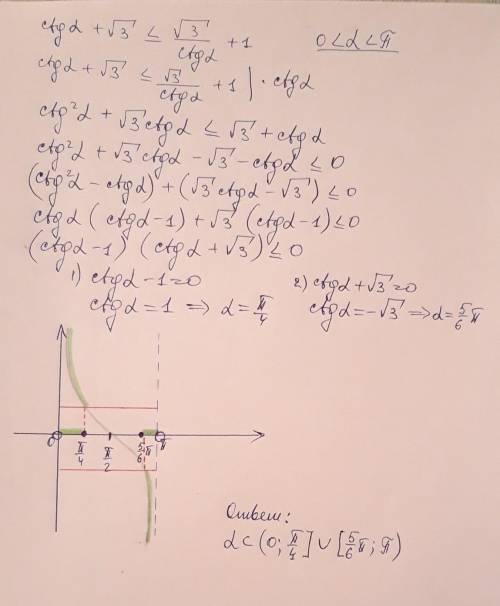 ctgα + √3 ≤ √3/ctgα + 1    0<α<π
ctgα + √3 ≤ √3/ctgα + 1 | · ctgα
ctg²α + √3 ctgα ≤ √3 + ctgα
ctg²α + √3 ctgα − √3 − ctgα ≤ 0
(ctg²α − ctgα) + (√3 ctgα − √3) ≤ 0
ctgα (ctgα−1) + √3 (ctgα−1) ≤ 0
(ctgα−1) (ctgα + √3) ≤ 0
1) ctgα − 1 = 0    2) ctgα + √3 = 0
ctgα = 1 ⇒ α = π/4    ctgα = −√3 ⇒ α = 5/6 π
0 π/4 π/2 5/6 π π
Ответ:
α ⊂ (0; π/4] ∪ [5/6 π; π)